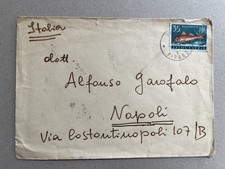 Italia
35
dott.
Alfonso Garofalo
Napoli
Via Costantinopoli 107/B